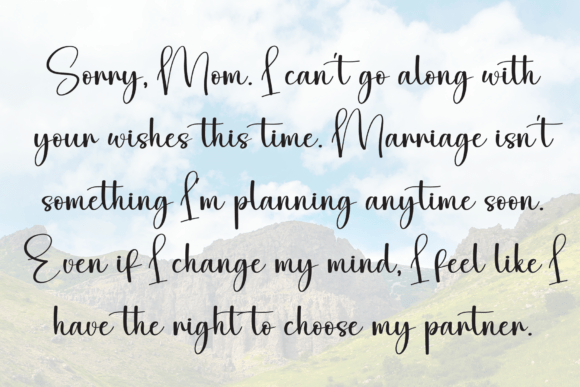 Sorry, Mom. I can't go along with
your wishes this time. Marriage isn't
something I'm planning anytime soon.
Even if I change my mind, I feel like I
have the right to choose my partner.